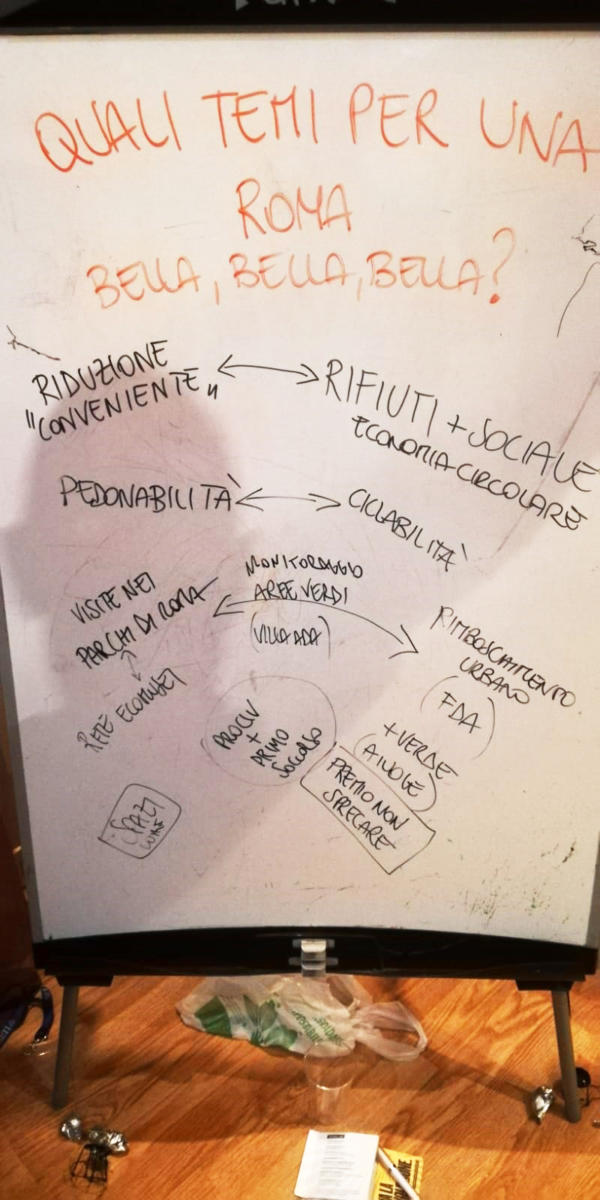 QUALI TEMI PER UNA
ROMA
BELLA, BELLA, BELLA?
RIDUZIONE
"CONVENIENTE"
RIFIUTI + SOCIALE
ECONOMIA CIRCOLARE
PEDONABILITÀ
CICLABILITÀ
MONITORAGGIO
AREE VERDI
(VILLA ADA)
VISITE NEI
PARCHI DI ROMA
RETE ECOMUSEI
RIMBOSCHIMENTO
URBANO
(FDA)
+ VERDE
(AIUOLE)
PROCIV
+
PRIMO
SOCCORSO
PREMIO NON
SPRECARE
SPAZI